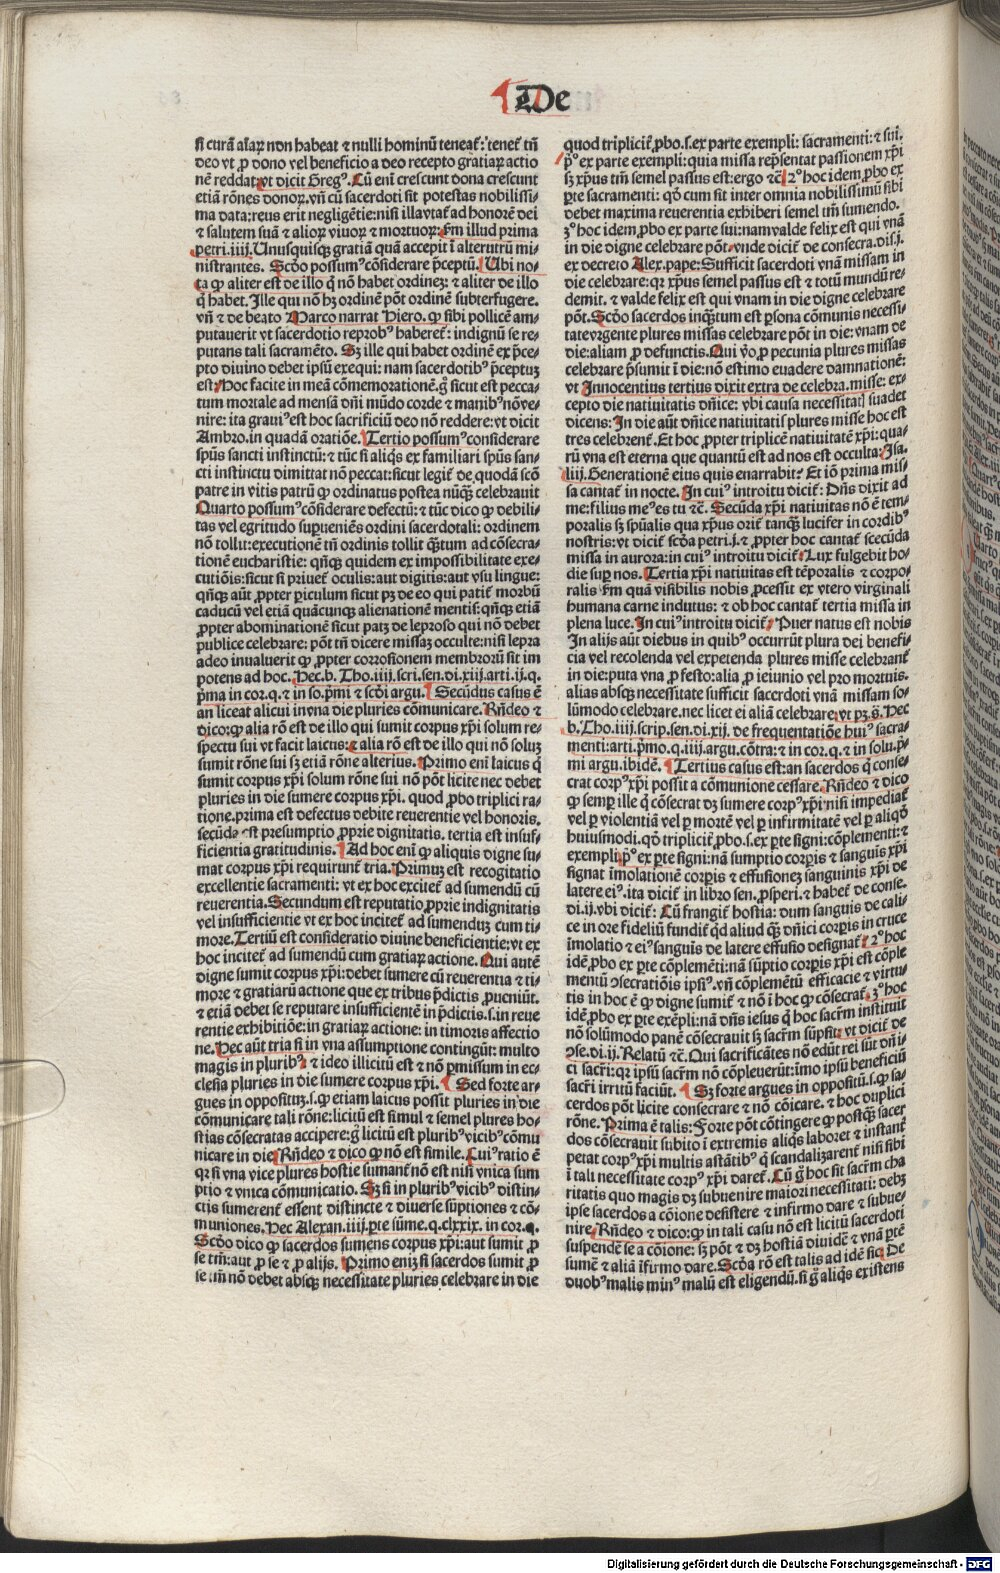 De
si curā aĺaꝝ non habeat ⁊ nulli hominū teneat᷑: tenet᷑ tn̄
deo vt ꝓ dono vel beneficio a deo recepto gratiaꝝ actio
nē reddat: vt dicit Gregꝰ. Cū eni᷑ crescunt dona crescunt
etiā rōnes donoꝝ. vn̄ cū sacerdoti sit potestas nobilissi⸗
ma data: reus erit negligētie: nisi illa vtat᷑ ad honorē dei
⁊ salutem suā ⁊ alioꝝ viuoꝝ ⁊ mortuoꝝ: ẜm illud prima
petri.iiij. Unusquisqꝫ gratiā quā accepit ī alterutrū mi⸗
nistrantes. Scd̓o possumꝰ cōsiderare p̄ceptū. Ubi no⸗
ta ꝙ aliter est de illo q̇ nō habet ordinez: ⁊ aliter de illo
q̇ habet. Ille qui nō hꝫ ordinē pōt ordinē subterfugere.
vn̄ ⁊ de beato Marco narrat Hiero. ꝙ sibi pollicē am⸗
putauerit vt sacerdotio reprobꝰ haberet᷑: indignū se re⸗
putans tali sacramēto. Sꝫ ille qui habet ordinē ex p̄ce⸗
pto diuino debet ipsū exequi: nam sacerdotibꝰ p̄ceptuꝫ
est: Hoc facite in meā cōmemorationē. g̊ sicut est pecca⸗
tum mortale ad mensā dn̄i mūdo corde ⁊ manibꝰ nō ve⸗
nire: ita grauiꝰ est hoc sacrificiū deo nō reddere: vt dicit
Ambro. in quadā oratiōe. Tertio possumꝰ considerare
spūs sancti instinctū: ⁊ tūc si aliq̇s ex familiari spūs san⸗
cti instinctu dimittat nō peccat: sicut legit᷑ de quodā scō
patre in vitis patrū ꝙ ordinatus postea nūqꝫ̄ celebrauit
Quarto possumꝰ cōsiderare defectū: ⁊ tūc dico ꝙ debili⸗
tas vel egritudo suꝑueniēs ordini sacerdotali: ordinem
nō tollit: executionē tn̄ ordinis tollit qꝫ̄tum ad cōsecra⸗
tionē eucharistie: qn̄qꝫ quidem ex impossibilitate exe⸗
cutiōis: sicut si priuet᷑ oculis: aut digitis: aut vsu lingue:
qn̄qꝫ aūt ꝓpter ꝑiculum sicut pꝫ de eo qui patit᷑ morbū
caducū vel etiā quācunqꝫ alienationē mentis: qn̄qꝫ etiā
ꝓpter abominationē sicut patꝫ de leproso qui nō debet
publice celebrare: pōt tn̄ dicere missaꝫ occulte: nisi lepra
adeo inualuerit ꝙ ꝓpter corrosionem membroꝝ sit im
potens ad hoc. Hec.b.Tho.iiij.scri.sen.di.xiij.arti.ij.q.
p̄ma in cor.q.⁊ in so.p̄mi ⁊ scd̓i argu. Secūdus casus ē
an liceat alicui in vna die pluries cōmunicare. Rn̄deo ⁊
dico: ꝙ alia rō est de illo qui sumit corpus xp̄i solum re⸗
spectu sui vt facit laicus: ⁊ alia rō est de illo qui nō soluꝫ
sumit rōne sui sꝫ etiā rōne alterius. Primo eni᷑ laicus q̇
sumit corpus xp̄i solum rōne sui nō pōt licite nec debet
pluries in die sumere corpus xp̄i. quod ꝓbo triplici ra⸗
tione. prima est defectus debite reuerentie vel honoris.
secūda est presumptio ꝓprie dignitatis. tertia est insuf⸗
ficientia gratitudinis. Ad hoc eni᷑ ꝙ aliquis digne su⸗
mat corpus xp̄i requirunt᷑ tria. Primuꝫ est recogitatio
excellentie sacramenti: vt ex hoc excitet᷑ ad sumendū cū
reuerentia. Secundum est reputatio ꝓprie indignitatis
vel insufficientie vt ex hoc incitet᷑ ad sumenduꝫ cum ti⸗
more. Tertiū est consideratio diuine beneficientie: vt ex
hoc incitet᷑ ad sumendū cum gratiaꝝ actione. Qui autē
digne sumit corpus xp̄i: debet sumere cū reuerentia ⁊ ti⸗
more ⁊ gratiarū actione que ex tribus p̄dictis ꝓueniūt.
⁊ etiā debet se reputare insufficientē in p̄dictis.s.in reue
rentie exhibitiōe: in gratiaꝝ actione: in timoris affectio
ne. Hec aūt tria si in vna assumptione contingūt: multo
magis in pluribꝰ: ⁊ ideo illicitū est ⁊ nō ꝑmissum in ec⸗
clesia pluries in die sumere corpus xp̄i. Sed forte ar⸗
gues in oppositūꝫ.s.ꝙ etiam laicus possit pluries in die
cōmunicare tali rōne: licitū est simul ⁊ semel plures ho⸗
stias cōsecratas accipere: g̊ licitū est pluribꝰ vicibꝰ cōmu
nicare in die. Rn̄deo ⁊ dico ꝙ nō est simile. Cuiꝰ ratio ē
qꝛ si vna vice plures hostie sumant᷑ nō est nisi vnica sum
ptio ⁊ vnica cōmunicatio. Sꝫ si in pluribꝰ vicibꝰ distin⸗
ctis sumerent᷑ essent distincte ⁊ diuerse sūptiones ⁊ cō⸗
muniones. Hec Alexan.iiij.ꝑte sūme.q.clxxix.in cor.q.
Scd̓o dico ꝙ sacerdos sumens corpus xp̄i: aut sumit ꝓ
se tm̄: aut ꝓ se ⁊ ꝓ alijs. Primo eniꝫ si sacerdos sumit ꝓ
se tm̄ nō debet absqꝫ necessitate pluries celebrare in die
quod triplicit᷑ ꝓbo.s.ex parte exempli: sacramenti: ⁊ sui.
p̄ꝰ ex parte exempli: quia missa rep̄sentat passionem xp̄i
sꝫ xp̄us tm̄ semel passus est: ergo ⁊c̄. 2ꝰ hoc idem ꝓbo ex
ꝑte sacramenti: qd̓ cum sit inter omnia nobilissimū sibi
debet maxima reuerentia exhiberi semel tm̄ sumendo.
3ꝰ hoc idem ꝓbo ex parte sui: nam valde felix est qui vnā
in die digne celebrare pōt. vnde dicit᷑ de consecra.dis.j.
ex decreto Alex.pape: Sufficit sacerdoti vnā missam in
die celebrare: qꝛ xp̄us semel passus est ⁊ totū mundū re⸗
demit. ⁊ valde felix est qui vnam in die digne celebrare
pōt. Scd̓o sacerdos inqꝫ̄tum est ꝑsona cōmunis necessi⸗
tate vrgente plures missas celebrare pōt in die: vnam de
die: aliam ꝓ defunctis. Qui v̓o ꝓ pecunia plures missas
celebrare p̄sumit ī die: nō estimo euadere damnationē:
vt Innocentius tertius dixit extra de celebra.misse: ex⸗
cepto die natiuitatis dn̄ice: vbi causa necessitatꝭ suadet
dicens: In die aūt dn̄ice natiuitatis plures misse hoc est
tres celebrent᷑. Et hoc ꝓpter triplicē natiuitatē xp̄i: qua⸗
rū vna est eterna que quantū est ad nos est occulta: Isa.
liij. Generationē eius quis enarrabit? Et iō prima mis⸗
sa cantat᷑ in nocte. In cuiꝰ introitu dicit᷑: Dn̄s dixit ad
me: filius meꝰ es tu ⁊c̄. Secūda xp̄i natiuitas nō ē tem⸗
poralis sꝫ spūalis qua xp̄us orit᷑ tanqꝫ̄ lucifer in cordibꝰ
nostris: vt dicit᷑ scd̓a petri.j.⁊ ꝓpter hoc cantat᷑ scecūda
missa in aurora: in cuiꝰ introitu dicit᷑: Lux fulgebit ho⸗
die suꝑ nos. Tertia xp̄i natiuitas est tēporalis ⁊ corpo⸗
ralis ẜm quā visibilis nobis ꝓcessit ex vtero virginali
humana carne indutus: ⁊ ob hoc cantat᷑ tertia missa in
plena luce. In cuiꝰ introitu dicit᷑: Puer natus est nobis
In alijs aūt diebus in quibꝰ occurrūt plura dei benefi⸗
cia vel recolenda vel expetenda plures misse celebrant᷑
in die: puta vna ꝓ festo: alia ꝓ ieiunio vel pro mortuis.
alias absqꝫ necessitate sufficit sacerdoti vnā missam so⸗
lūmodo celebrare. nec licet ei aliā celebrare: vt pꝫ.s̄. Hec
b.Tho.iiij.scrip.sen.di.xij.de frequentatiōe huiꝰ sacra⸗
menti: arti.p̄mo.q.iiij.argu.cōtra: ⁊ in cor.q.⁊ in solu.p̄⸗
mi argu.ibidē. Tertius casus est: an sacerdos q̇ conse⸗
crat corpꝰ xp̄i possit a cōmunione cessare. Rn̄deo ⁊ dico
ꝙ semꝑ ille q̇ cōsecrat dꝫ sumere corpꝰ xp̄i nisi impediat᷑
vel ꝑ violentiā vel ꝑ mortē vel ꝑ infirmitatē vel ꝑ aliqd̓
huiusmodi. qd̓ triplicit᷑ ꝓbo.s.ex ꝑte signi: cōplementi: ⁊
exempli. p̄ꝰ ex ꝑte signi: nā sumptio corꝑis ⁊ sanguis xp̄i
signat īmolationē corꝑis ⁊ effusioneꝫ sanguinis xp̄i de
latere eiꝰ. ita dicit᷑ in libro sen.ꝓsperi. ⁊ habet᷑ de conse.
di.ij. vbi dicit᷑: Cū frangit᷑ hostia: dum sanguis de cali⸗
ce in ore fideliū fundit᷑ qd̓ aliud qꝫ̄ dn̄ici corꝑis in cruce
īmolatio ⁊ eiꝰ sanguis de latere effusio designat᷑. 2ꝰ hoc
idē ꝓbo ex ꝑte cōplemēti: nā sūptio corꝑis xp̄i est cōple
mentū ↄsecratiōis ipsiꝰ. vn̄ cōplemētū efficacie ⁊ virtu⸗
tis in hoc ē ꝙ digne sumit᷑ ⁊ nō ī hoc ꝙ cōsecrat᷑. 3ꝰ hoc
idē ꝓbo ex ꝑte exēpli: nā dn̄s iesus q̇ hoc sacr̄m instituit
nō solūmodo panē cōsecrauit sꝫ sacr̄m sūpsit: vt dicit᷑ de
ↄse.di.ij. Relatū ⁊c̄. Qui sacrificātes nō edūt rei sūt dn̄i⸗
ci sacri: qꝛ ipsū sacr̄m nō cōpleuerūt: īmo ipsū beneficiū
sacri irritū faciūt. Sꝫ forte argues in oppositū.s.ꝙ sa⸗
cerdos pōt licite consecrare ⁊ nō cōicare. ⁊ hoc duplici
rōne. Prima ē talis: Forte pōt cōtingere ꝙ postqꝫ̄ sacer
dos cōsecrauit subito ī extremis aliq̇s laboret ⁊ instant᷑
petat corpꝰ xp̄i multis astātibꝰ q̇ scandalizarent᷑ nisi sibi
ī tali necessitate corpꝰ xp̄i daret᷑. Cū g̊ hoc sit sacr̄m cha
ritatis quo magis dꝫ subuenire maiori necessitati: debꝫ
ipse sacerdos a cōione desistere ⁊ infirmo dare ⁊ subue⸗
nire. Rn̄deo ⁊ dico: ꝙ in tali casu nō est licitū sacerdoti
suspendē se a cōione: sꝫ pōt ⁊ dꝫ hostiā diuidē ⁊ vnā ꝑtē
sumē ⁊ aliā īfirmo dare. Scd̓a rō est talis ad idē sic: De
duobꝰ malis minꝰ malū est eligendū. si g̊ aliq̇s existens
Digitalisierung gefördert durch die Deutsche Forschungsgemeinschaft - DFG